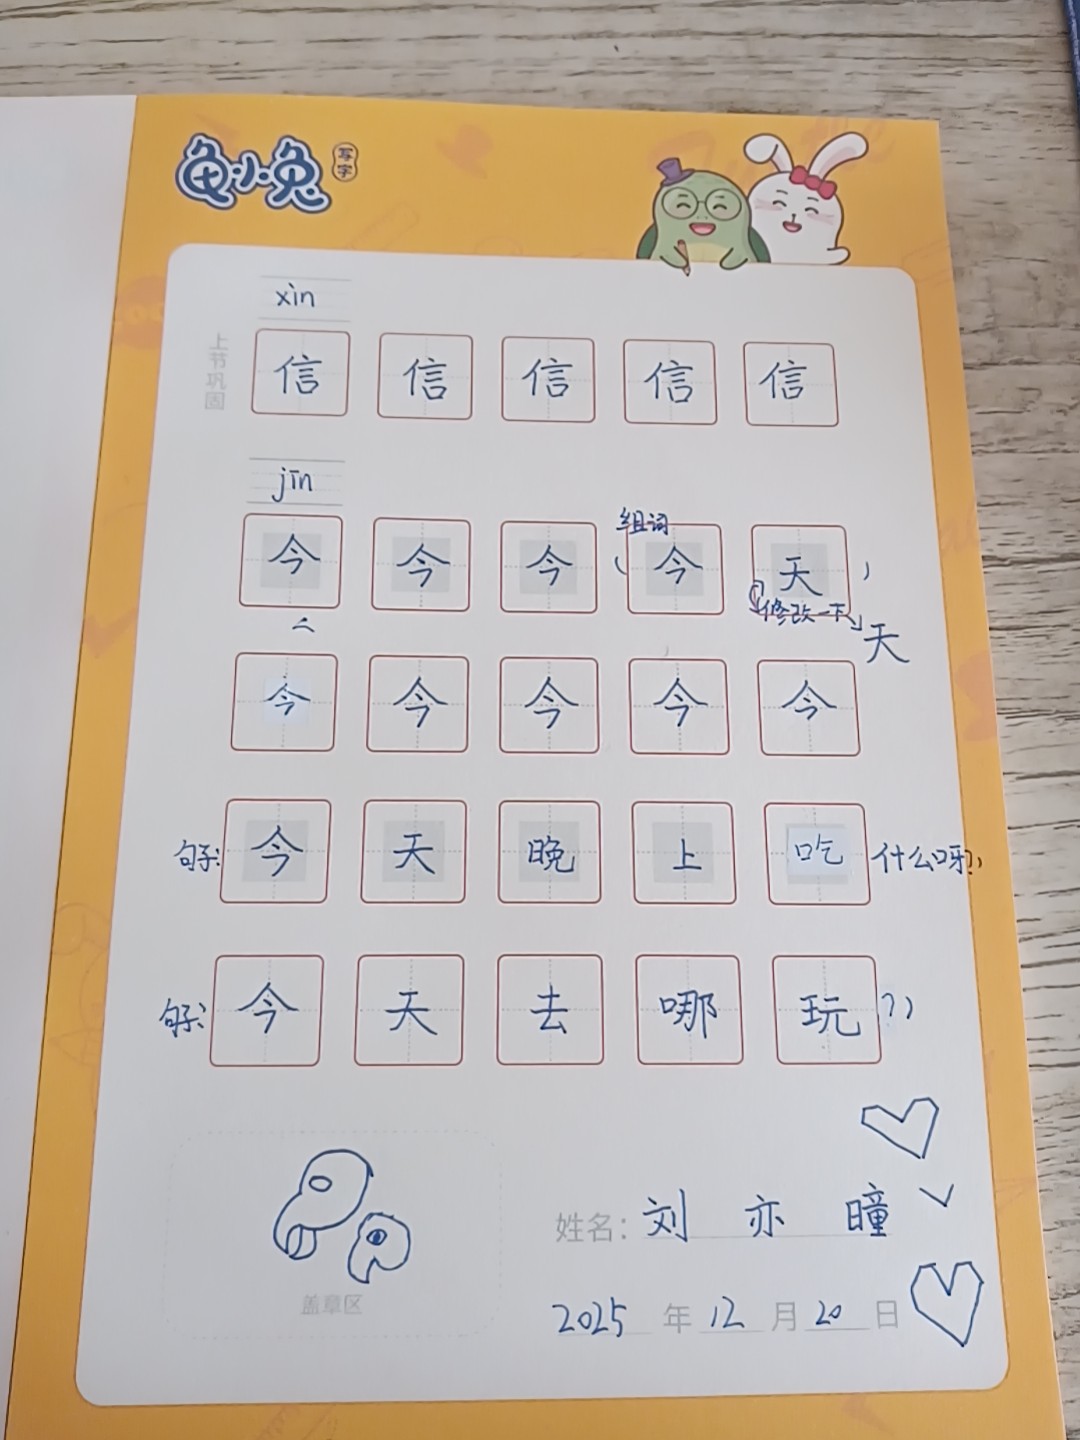 龟小兔 写字
xìn
上节巩固
信 信 信 信 信
jīn
组词
今 今 今 (今 天)
修改一下 天
今 今 今 今 今
句子: 今 天 晚 上 吃 什么呀?)
句子: 今 天 去 哪 玩 ?)
姓名: 刘 亦 瞳
盖章区
2025 年 12 月 20 日